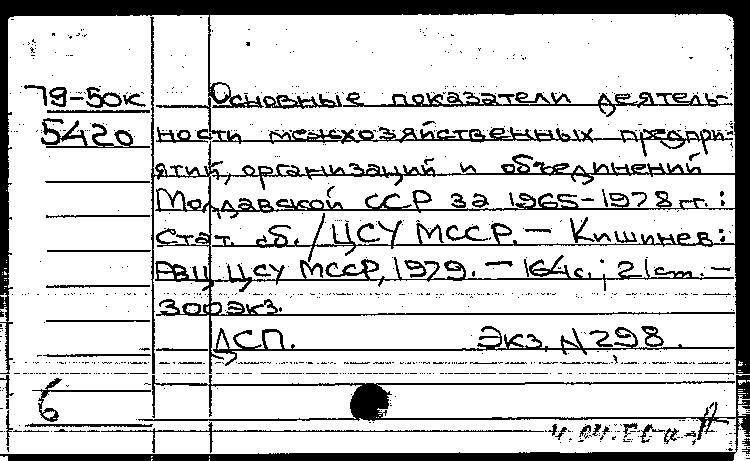 79-50к Основные показатели деятель-
5420 ности межхозяйственных предпри-
ятий, организаций и объединений
Молдавской ССР за 1965-1978 гг. :
Стат. сб. / ЦСУ МССР. — Кишинев :
РВЦ ЦСУ МССР, 1979. — 164 с. ; 21 см. —
300 экз.
ДСП. Экз. N 298.
6